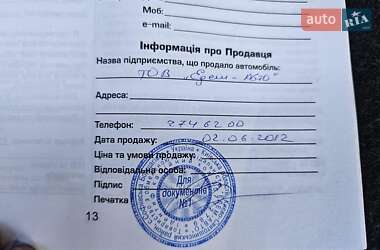 Моб:
e-mail:
Інформація про Продавця
Назва підприємства, що продало автомобіль:
ТОВ "Едем-Авто"
Адреса:
Телефон: 3746200
Дата продажу: 02.06.2012
Ціна та умови продажу:
Відповідальна особа:
Підпис
Печатка
Для
документів
№1
Україна
13
auto RIA